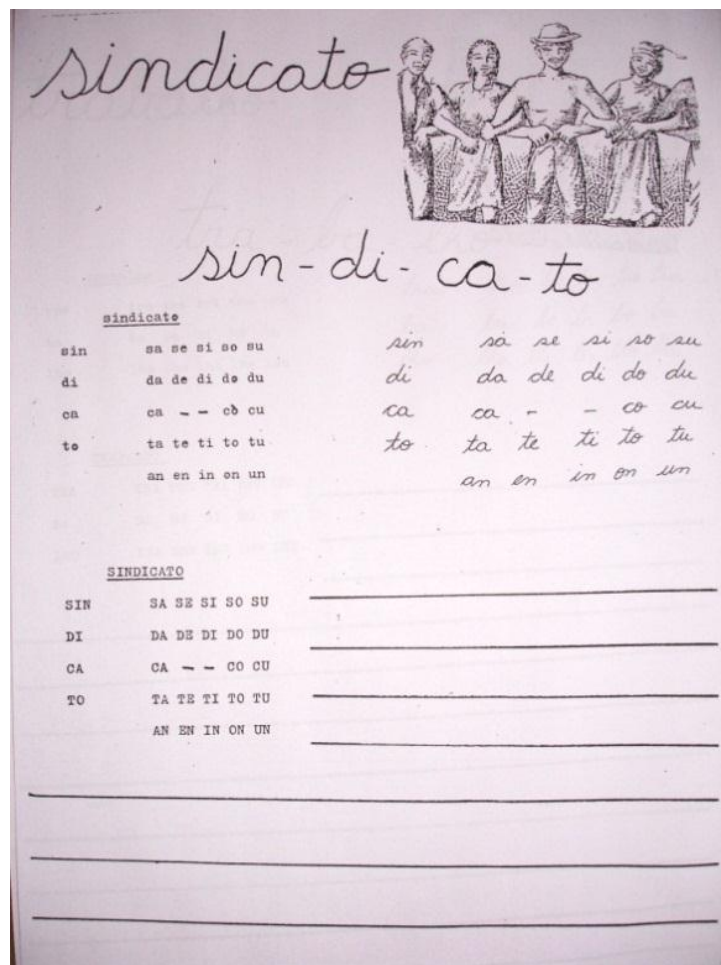 sindicato
sin - di - ca - to
sindicato
sin sa se si so su
di da de di do du
ca ca - - co cu
to ta te ti to tu
an en in on un
sin sa se si so su
di da de di do du
ca ca - - co cu
to ta te ti to tu
an en in on un
SINDICATO
SIN SA SE SI SO SU
DI DA DE DI DO DU
CA CA - - CO CU
TO TA TE TI TO TU
AN EN IN ON UN